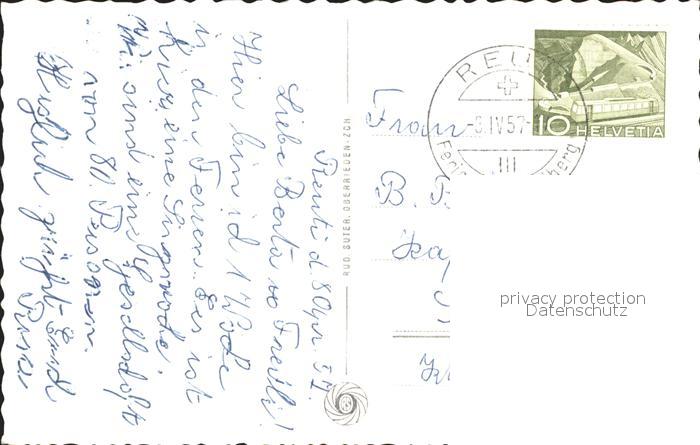 Reuti d. 8 Apr. 57.
Liebe Berta u Fredli!
Hier bin ich 1 Woche
in den Ferien. Es ist
Kurs eine Singwoche.
Wir sind eine Gesellschaft
von 80. Personen.
Herzlich grüsst Euch
RUD. SUTER, OBERRIEDEN-ZCH.
REUTI
-8.IV.57-
III
10 HELVETIA
Frau
B.
privacy protection
Datenschutz